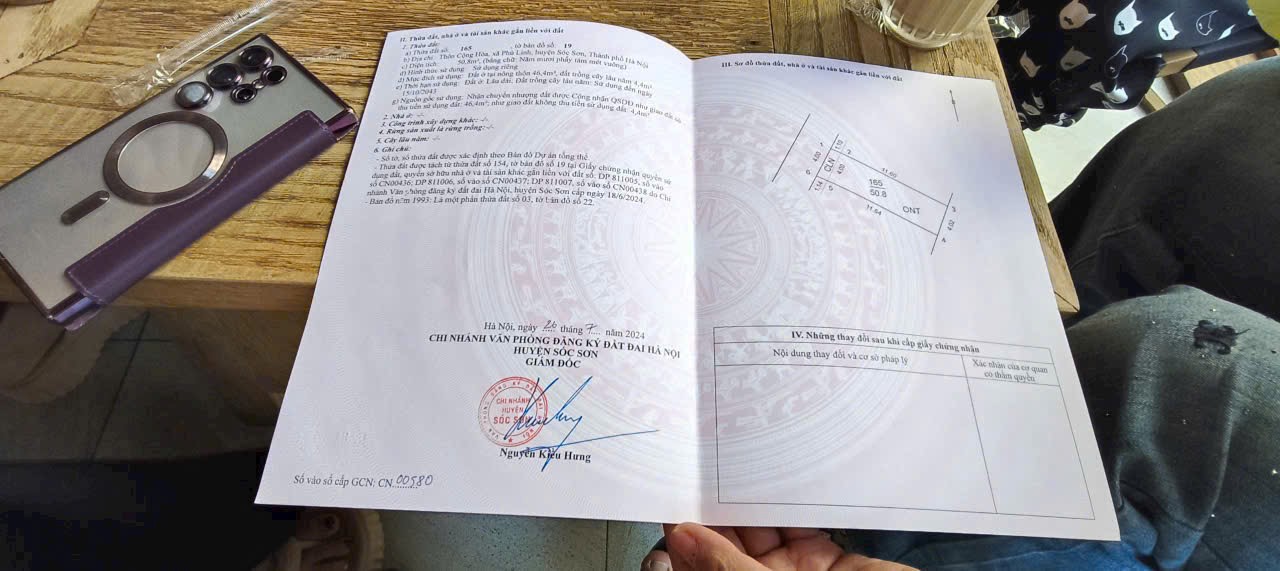 II. Thửa đất, nhà ở và tài sản khác gắn liền với đất
1. Thửa đất:
a) Thửa đất số: 165 , tờ bản đồ số: 19
b) Địa chỉ: Thôn Cộng Hòa, xã Phù Linh, huyện Sóc Sơn, Thành phố Hà Nội
c) Diện tích: 50,8m², (bằng chữ: Năm mươi phẩy tám mét vuông)
d) Hình thức sử dụng: Sử dụng riêng
đ) Mục đích sử dụng: Đất ở tại nông thôn 46,4m², đất trồng cây lâu năm 4,4m²
e) Thời hạn sử dụng: Đất ở: Lâu dài. Đất trồng cây lâu năm: Sử dụng đến ngày
15/10/2043
g) Nguồn gốc sử dụng: Nhận chuyển nhượng đất được Công nhận QSDĐ như giao đất có
thu tiền sử dụng đất: 46,4m²; như giao đất không thu tiền sử dụng đất: 4,4m²
2. Nhà ở: -/-
3. Công trình xây dựng khác: -/-
4. Rừng sản xuất là rừng trồng: -/-
5. Cây lâu năm: -/-
6. Ghi chú:
- Số tờ, số thửa đất được xác định theo Bản đồ Dự án tổng thể
- Thửa đất được tách từ thửa đất số 154, tờ bản đồ số 19 tại Giấy chứng nhận quyền sử
dụng đất, quyền sở hữu nhà ở và tài sản khác gắn liền với đất số: DP 811005, số vào
số CN00436; DP 811006, số vào số CN00437; DP 811007, số vào số CN00438 do Chi
nhánh Văn phòng đăng ký đất đai Hà Nội, huyện Sóc Sơn cấp ngày 18/6/2024.
- Bản đồ năm 1993: Là một phần thửa đất số 03, tờ bản đồ số 22.
Hà Nội, ngày 26 tháng 7 năm 2024
CHI NHÁNH VĂN PHÒNG ĐĂNG KÝ ĐẤT ĐAI HÀ NỘI
HUYỆN SÓC SƠN
GIÁM ĐỐC
CHI NHÁNH
HUYỆN
SÓC SƠN
Nguyễn Kiều Hưng
Số vào sổ cấp GCN: CN 00580
III. Sơ đồ thửa đất, nhà ở và tài sản khác gắn liền với đất
CLN
165
50.8
ONT
11.60
11.64
4.02
IV. Những thay đổi sau khi cấp giấy chứng nhận
Nội dung thay đổi và cơ sở pháp lý
Xác nhận của cơ quan
có thẩm quyền